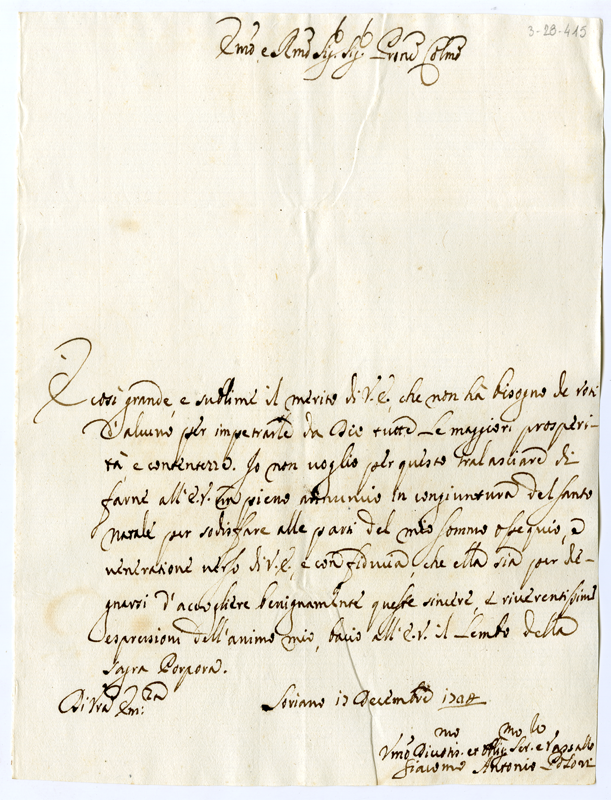 3-28-415
Em̃o e Rm̃o Sig.r Sig.r Prone Colmo
È così grande, e sublime il merito di V.E., che non hà bisogno de voti
d'alcuno per impetrarle da Dio tutte le maggiori prosperi-
tà e contentezze. Io non voglio per questo tralasciare di
farne all'E.V. un pieno annuncio in congiuntura del santo
natale per sodisfare alle parti del mio sommo ossequio, e
veneratione verso di V.E., e con fiducia che ella sia per de-
gnarsi d'accogliere benignamente queste sincere, e riverentissime
espressioni dell'animo mio, bacio all'E.V. il Lembo della
Sagra Porpora.
Di Vra Em:za
Soriano 17 Decembre
Vmo Divotis.mo et Oblig.mo Ser.e e Vassallo
Giacomo Antonio